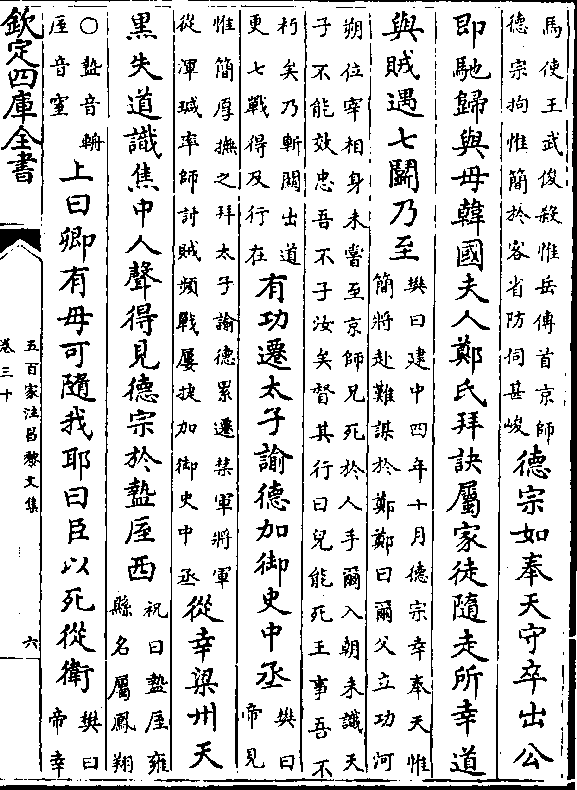 馬使王武俊殺惟岳傳首京師
德宗拘惟簡於客省防伺甚峻
德宗如奉天守卒出公
即馳歸與母韓國夫人鄭氏拜訣屬家徒隨走所幸道
與賊遇七鬬乃至
樊曰建中四年十月德宗幸奉天惟
簡將赴難謀於鄭鄭曰爾父立功河
朔位宰相身未嘗至京師兄死於人手爾入朝未識天
子不能效忠吾不子汝矣督其行曰兒能死王事吾不
朽矣乃斬關出道
更七戰得及行在
有功遷太子諭德加御史中丞
樊曰
帝見
惟簡厚撫之拜太子諭德累遷禁軍將軍
從渾瑊率師討賊頻戰屢捷加御史中丞
從幸梁州天
黑失道識焦中人聲得見德宗於盩厔西
祝曰盩厔雍
縣名屬鳳翔
○盩音輈
厔音窒
上曰卿有母可隨我耶曰臣以死從衛
樊曰
帝幸
欽定四庫全書
五百家注昌黎文集
卷三十
六